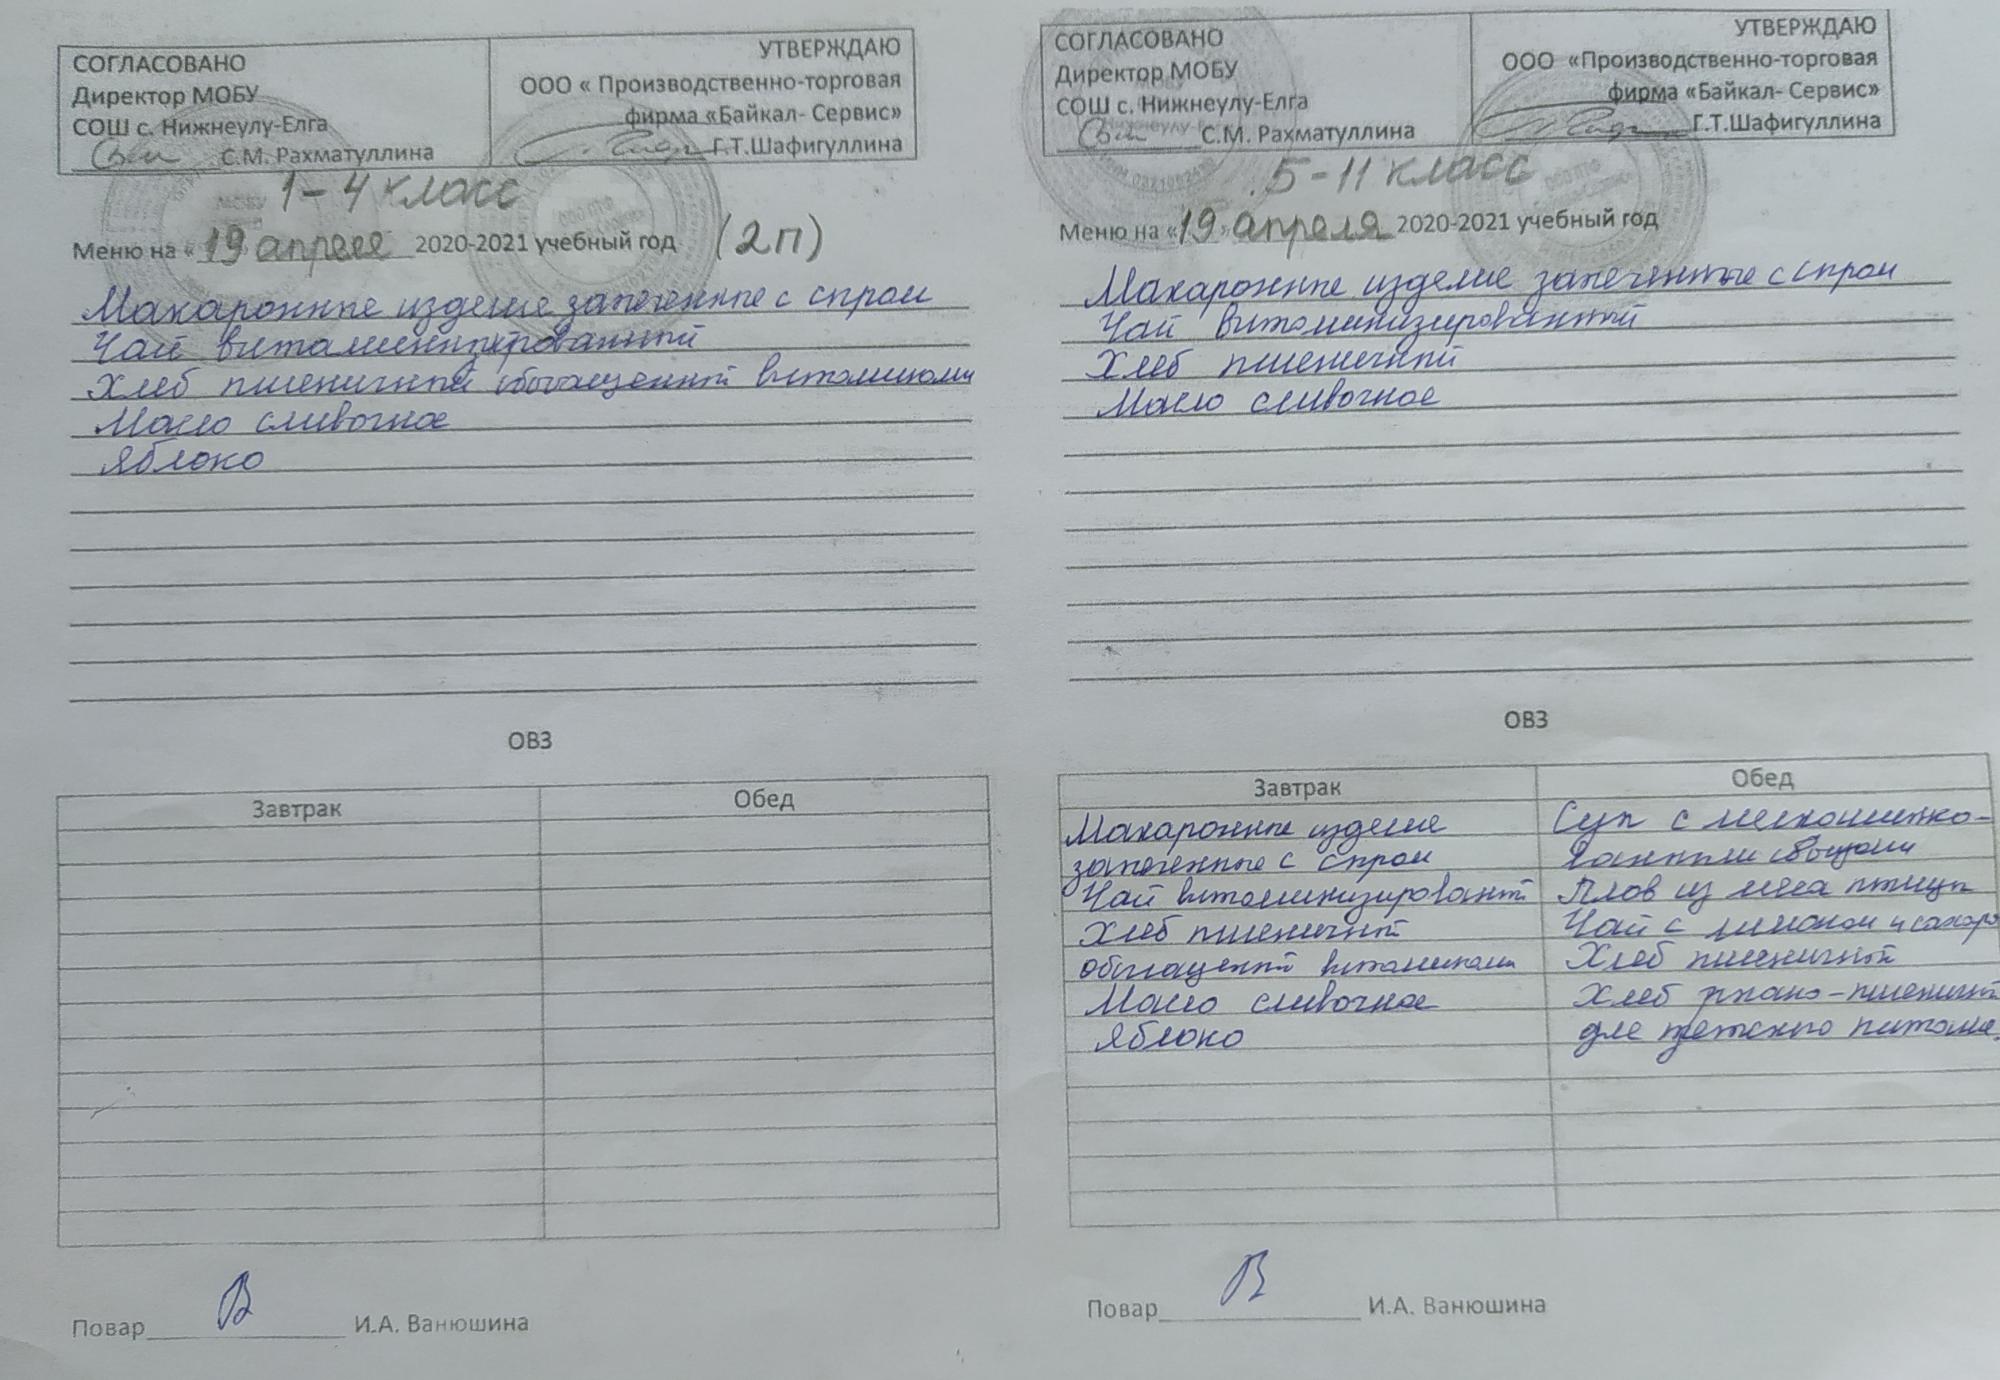 СОГЛАСОВАНО
Директор МОБУ
СОШ с. Нижнеулу-Елга
С.М. Рахматуллина
УТВЕРЖДАЮ
ООО « Производственно-торговая
фирма «Байкал- Сервис»
Г.Т.Шафигуллина
1-4 класс
Меню на « 19 апреля 2020-2021 учебный год (2п)
Макаронные изделие запеченные с сыром
Чай витаминизированный
Хлеб пшеничный обогащенный витаминами
Масло сливочное
Яблоко
ОВЗ
Завтрак Обед
Повар И.А. Ванюшина
СОГЛАСОВАНО
Директор МОБУ
СОШ с. Нижнеулу-Елга
С.М. Рахматуллина
УТВЕРЖДАЮ
ООО «Производственно-торговая
фирма «Байкал- Сервис»
Г.Т.Шафигуллина
5-11 класс
Меню на «19» апреля 2020-2021 учебный год
Макаронные изделие запеченные с сыром
Чай витаминизированный
Хлеб пшеничный
Масло сливочное
ОВЗ
Завтрак Обед
Макаронные изделие
запеченные с сыром
Чай витаминизированный
Хлеб пшеничный
обогащенный витаминами
Масло сливочное
Яблоко
Суп с мелкошинко-
ванными овощами
Плов из мяса птицы
Чай с лимоном и сахаро
Хлеб пшеничный
Хлеб ржано-пшеничный
для детского питания.
Повар И.А. Ванюшина